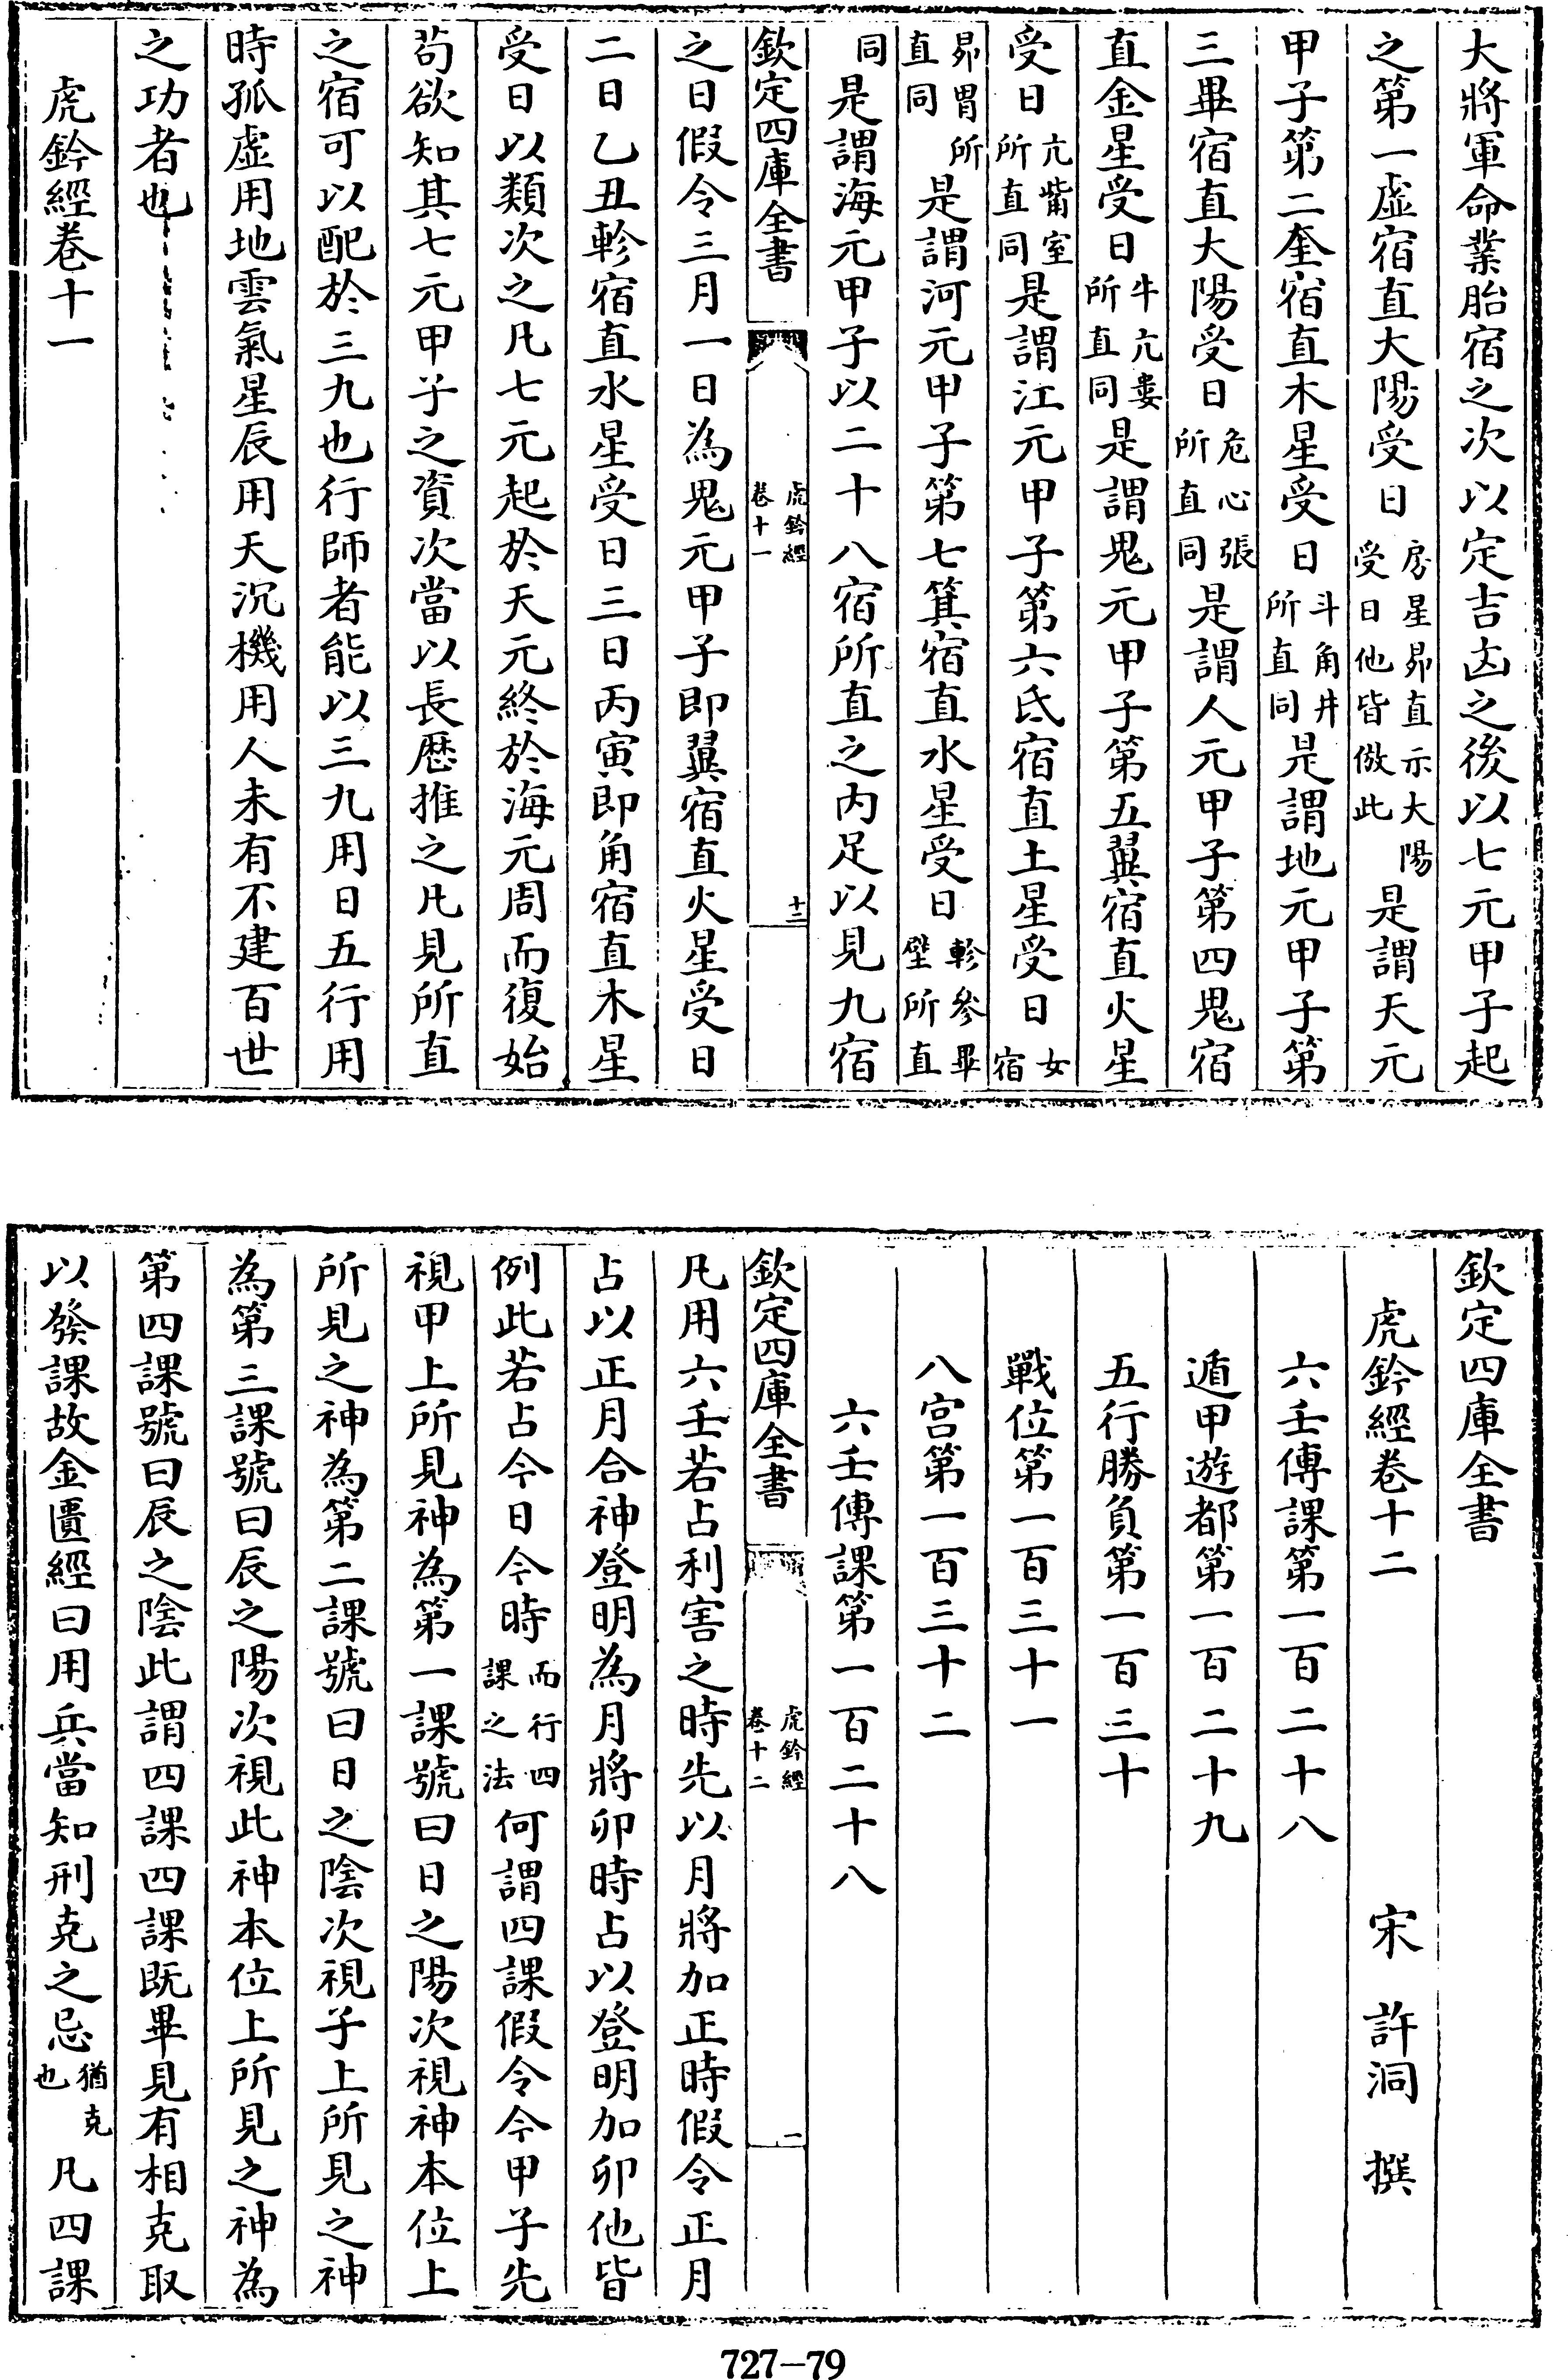 大將軍命業胎宿之次以定吉凶之後以七元甲子起
之第一虛宿直大陽受日房星昴直示大陽受日他皆倣此是謂天元
甲子第二奎宿直木星受日斗角井所直同是謂地元甲子第
三畢宿直大陽受日危心張所直同是謂人元甲子第四鬼宿
直金星受日牛亢婁所直同是謂鬼元甲子第五翼宿直火星
受日亢觜室所直同是謂江元甲子第六氐宿直土星受日女宿
昴胃所直同是謂河元甲子第七箕宿直水星受日軫參畢壁所直
同是謂海元甲子以二十八宿所直之内足以見九宿
欽定四庫全書
虎鈐經
卷十一
十二
之日假令三月一日為鬼元甲子即翼宿直火星受日
二日乙丑軫宿直水星受日三日丙寅即角宿直木星
受日以類次之凡七元起於天元終於海元周而復始
茍欲知其七元甲子之資次當以長厯推之凡見所直
之宿可以配於三九也行師者能以三九用日五行用
時孤虛用地雲氣星辰用天沉機用人未有不建百世
之功者也
虎鈐經卷十一
欽定四庫全書
虎鈐經卷十二
宋 許洞 撰
六壬傳課第一百二十八
遁甲遊都第一百二十九
五行勝負第一百三十
戰位第一百三十一
八宫第一百三十二
六壬傳課第一百二十八
欽定四庫全書
虎鈐經
卷十二
一
凡用六壬若占利害之時先以月將加正時假令正月
占以正月合神登明為月將卯時占以登明加卯他皆
例此若占今日今時而行四課之法何謂四課假令今甲子先
視甲上所見神為第一課號曰日之陽次視神本位上
所見之神為第二課號曰日之陰次視子上所見之神
為第三課號曰辰之陽次視此神本位上所見之神為
第四課號曰辰之陰此謂四課四課既畢見有相克取
以發課故金匱經曰用兵當知刑克之忌猶克也凡四課
727-79